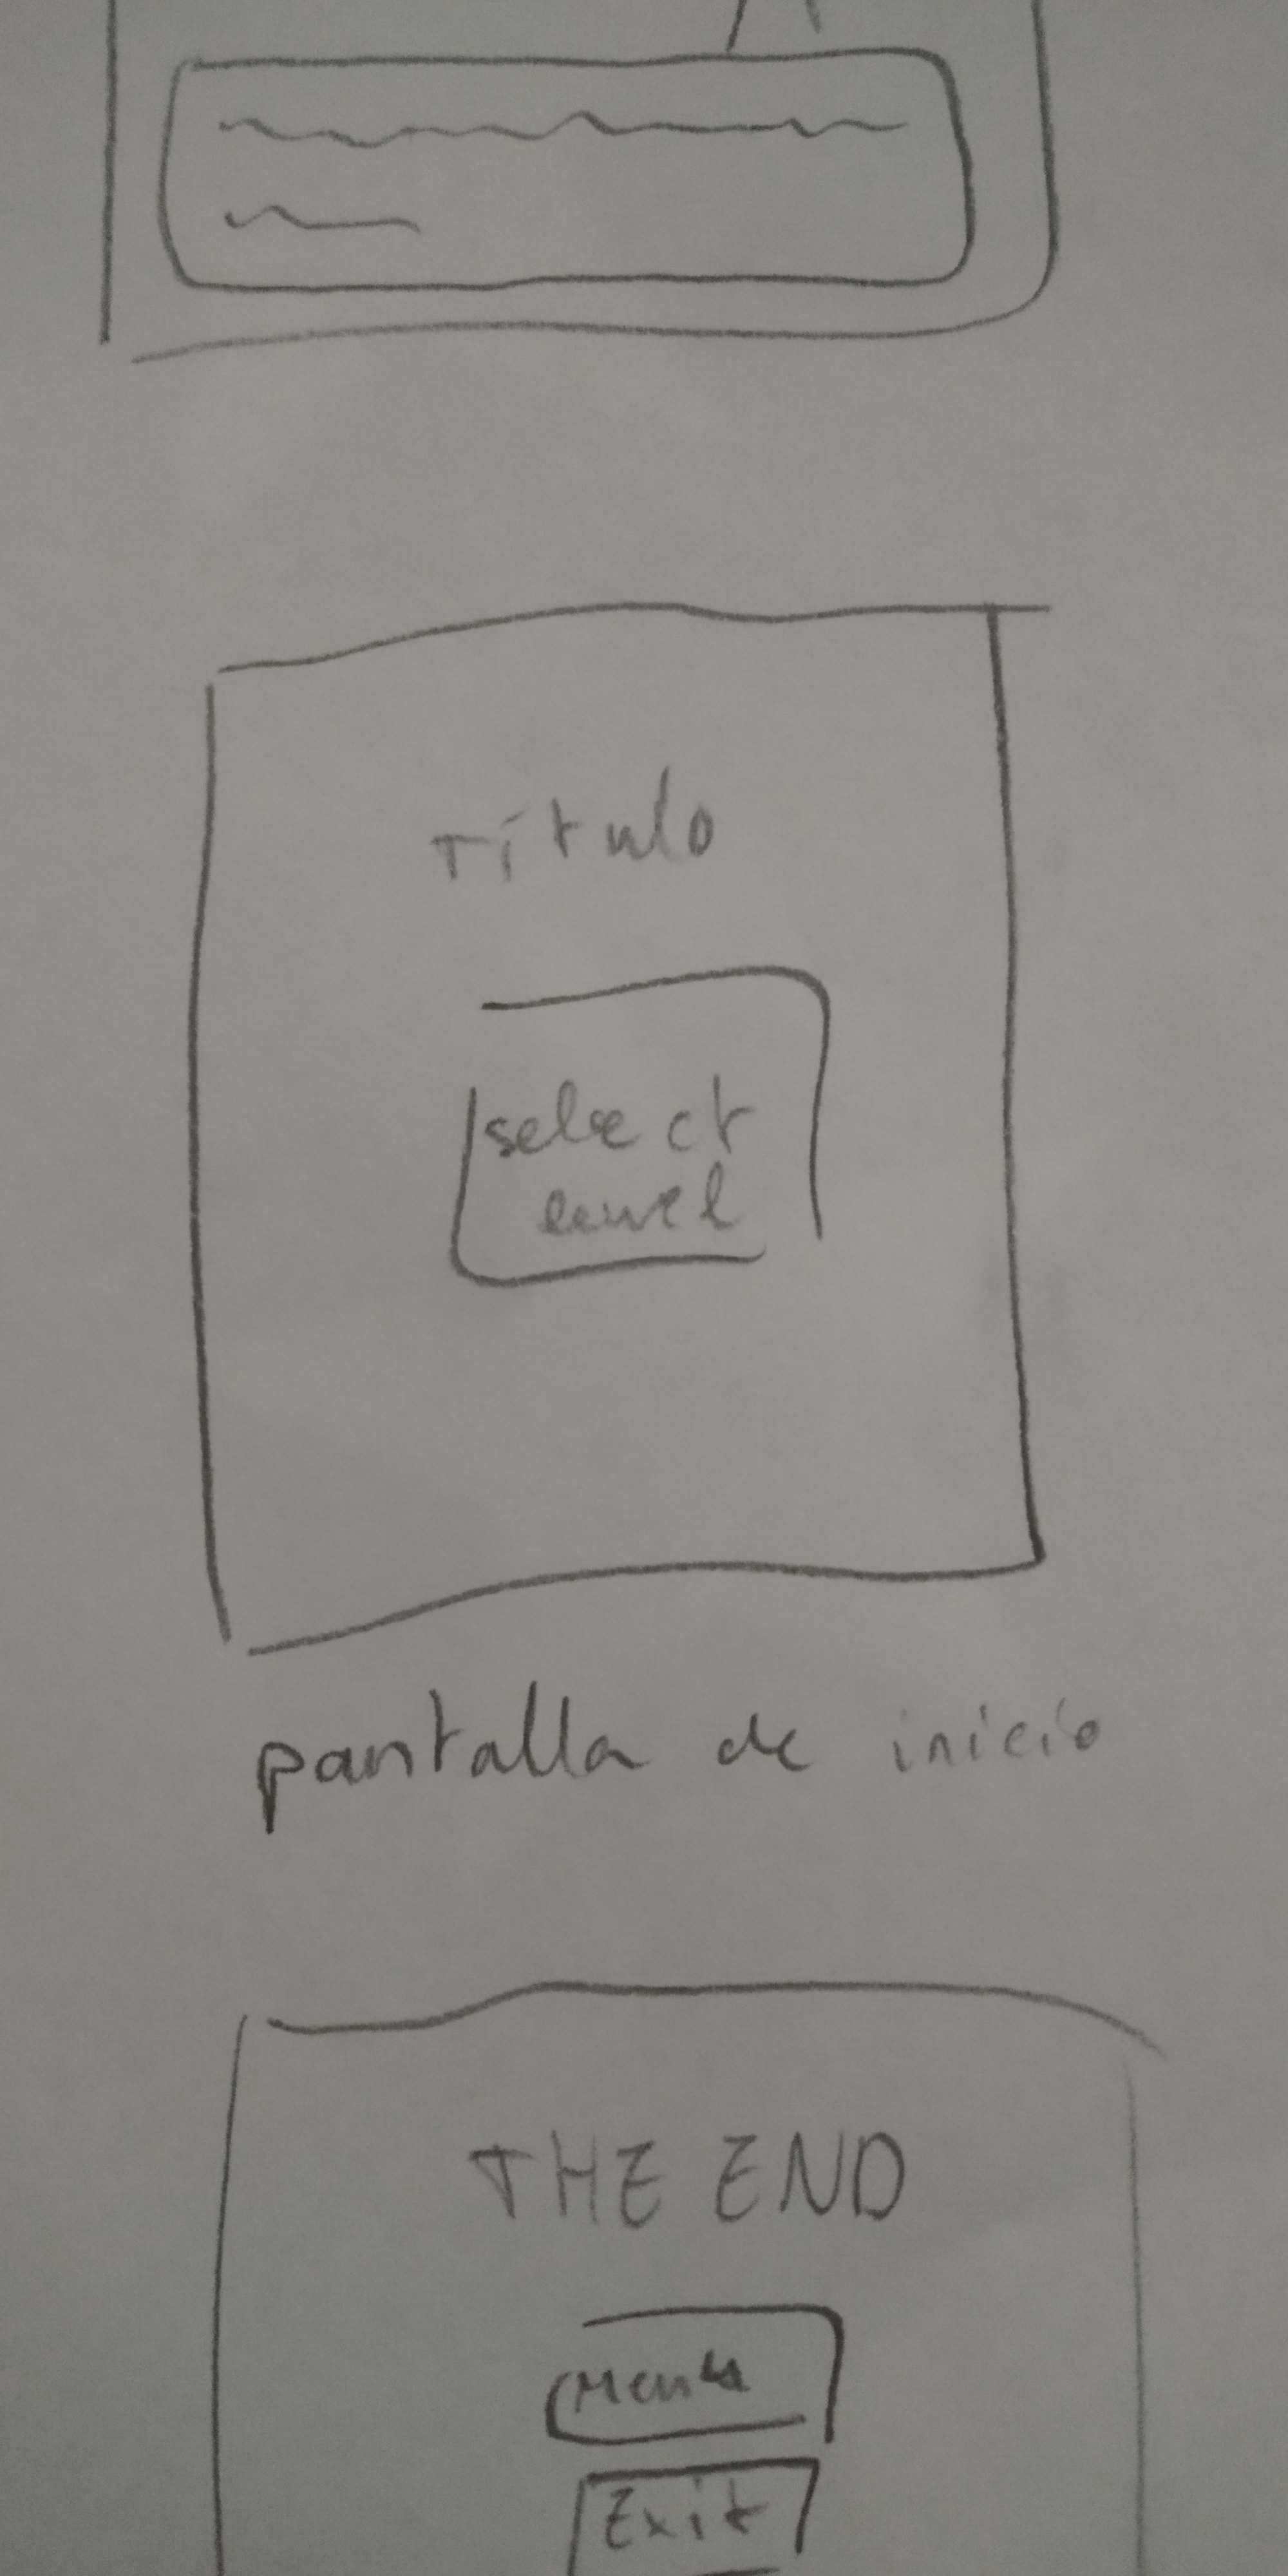 Título
select
level
pantalla de inicio
THE END
Menú
Exit